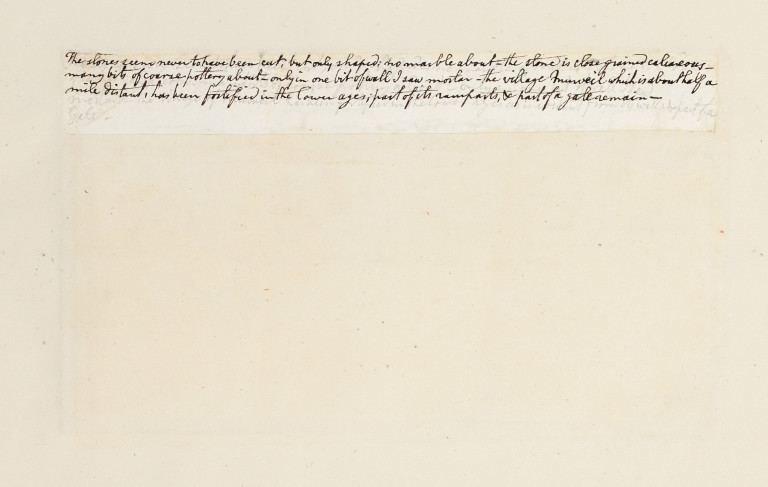 The stones seem never to have been cut, but only shaped; no marble about – the stone is close grained calcareous –
many bits of coarse pottery about – only in one bit of wall I saw morter – the village Murveil which is about half a
mile distant, has been fortified in the lower ages; part of its ramparts, & part of a gate remain –